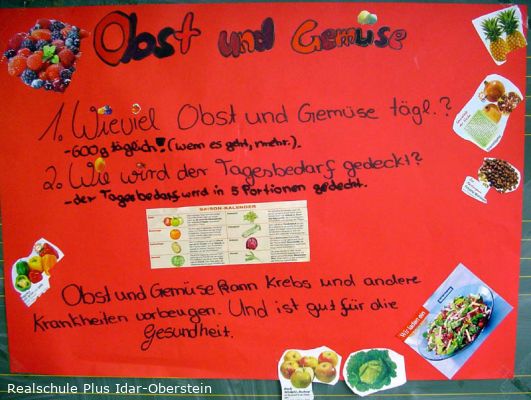 Obst und Gemüse
1. Wieviel Obst und Gemüse tägl.?
-600g täglich! (wenn es geht, mehr.).
2. Wie wird der Tagesbedarf gedeckt?
-der Tagesbedarf wird in 5 Portionen gedeckt.
SAISON-KALENDER
Obst und Gemüse kann Krebs und andere
Krankheiten vorbeugen. Und ist gut für die
Gesundheit.
Wir laden ein
Realschule Plus Idar-Oberstein